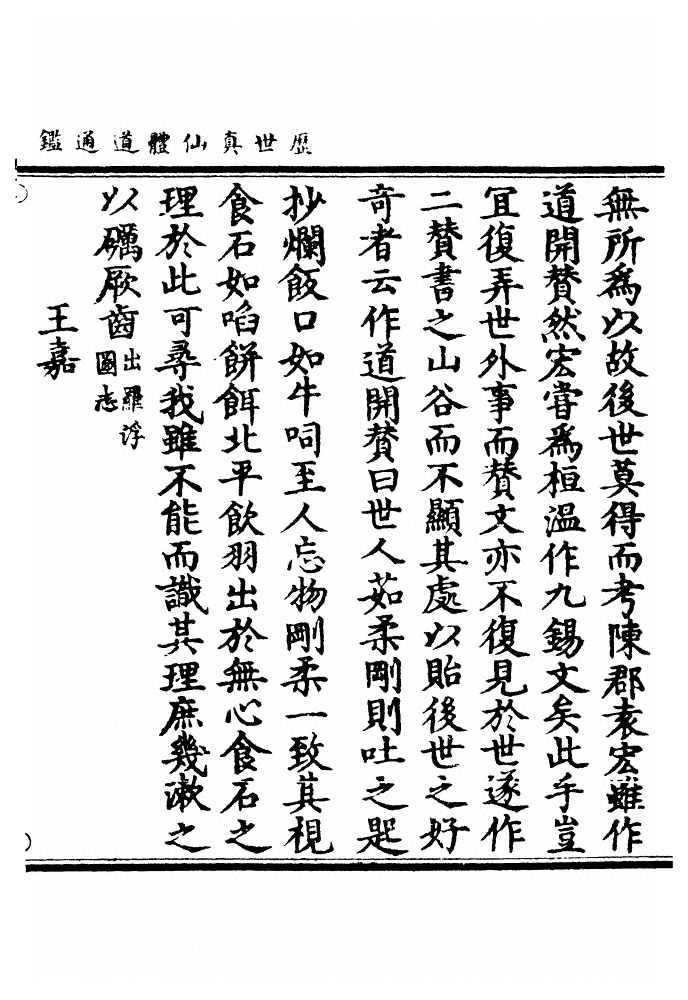 歷世真仙體道通鑑
無所爲以故後世莫得而考陳郡袁宏雖作
道開贊然宏嘗爲桓溫作九錫文矣此手豈
宜復弄世外事而贊文亦不復見於世遂作
二贊書之山谷而不顯其處以貽後世之好
奇者云作道開贊曰世人茹柔剛則吐之匙
抄爛飯口如牛呞至人忘物剛柔一致其視
食石如啗餅餌北平飲羽出於無心食石之
理於此可尋我雖不能而識其理庶幾漱之
以礪厥齒出羅浮圖志
王嘉